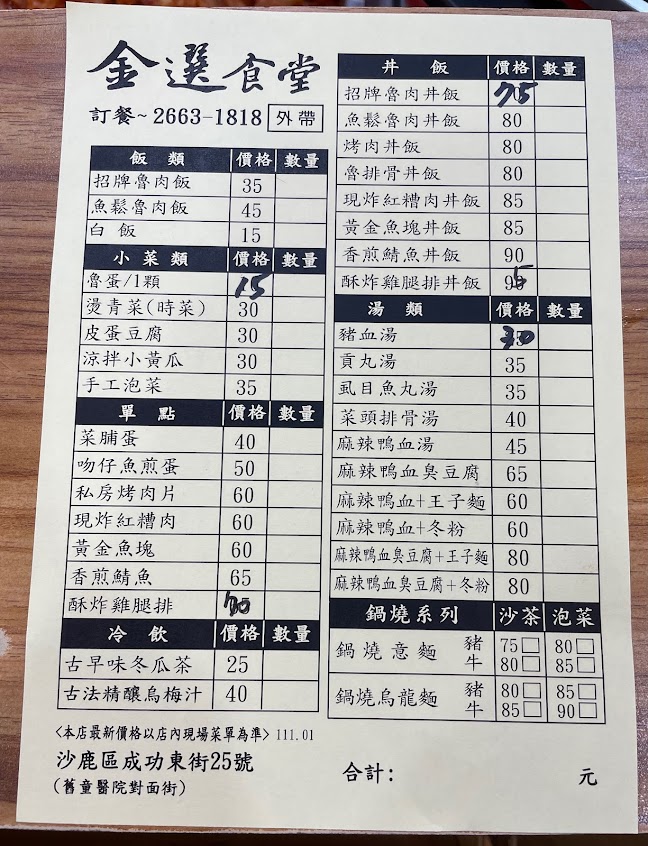 金選食堂
訂餐~2663-1818 外帶
飯類 價格 數量
招牌魯肉飯 35
魚鬆魯肉飯 45
白飯 15
小菜類 價格 數量
魯蛋/1顆 15
燙青菜(時菜) 30
皮蛋豆腐 30
涼拌小黃瓜 30
手工泡菜 35
單點 價格 數量
菜脯蛋 40
吻仔魚煎蛋 50
私房烤肉片 60
現炸紅糟肉 60
黃金魚塊 60
香煎鯖魚 65
酥炸雞腿排
冷飲 價格 數量
古早味冬瓜茶 25
古法精釀烏梅汁 40
丼飯 價格 數量
招牌魯肉丼飯 75
魚鬆魯肉丼飯 80
烤肉丼飯 80
魯排骨丼飯 80
現炸紅糟肉丼飯 85
黃金魚塊丼飯 85
香煎鯖魚丼飯 90
酥炸雞腿排丼飯 95
湯類 價格 數量
豬血湯 30
貢丸湯 35
虱目魚丸湯 35
菜頭排骨湯 40
麻辣鴨血湯 45
麻辣鴨血臭豆腐 65
麻辣鴨血+王子麵 60
麻辣鴨血+冬粉 60
麻辣鴨血臭豆腐+王子麵 80
麻辣鴨血臭豆腐+冬粉 80
鍋燒系列 沙茶 泡菜
鍋燒意麵 豬 75□ 80□
牛 80□ 85□
鍋燒烏龍麵 豬 80□ 85□
牛 85□ 90□
<本店最新價格以店內現場菜單為準> 111.01
沙鹿區成功東街25號
(舊童醫院對面街)
合計: 元